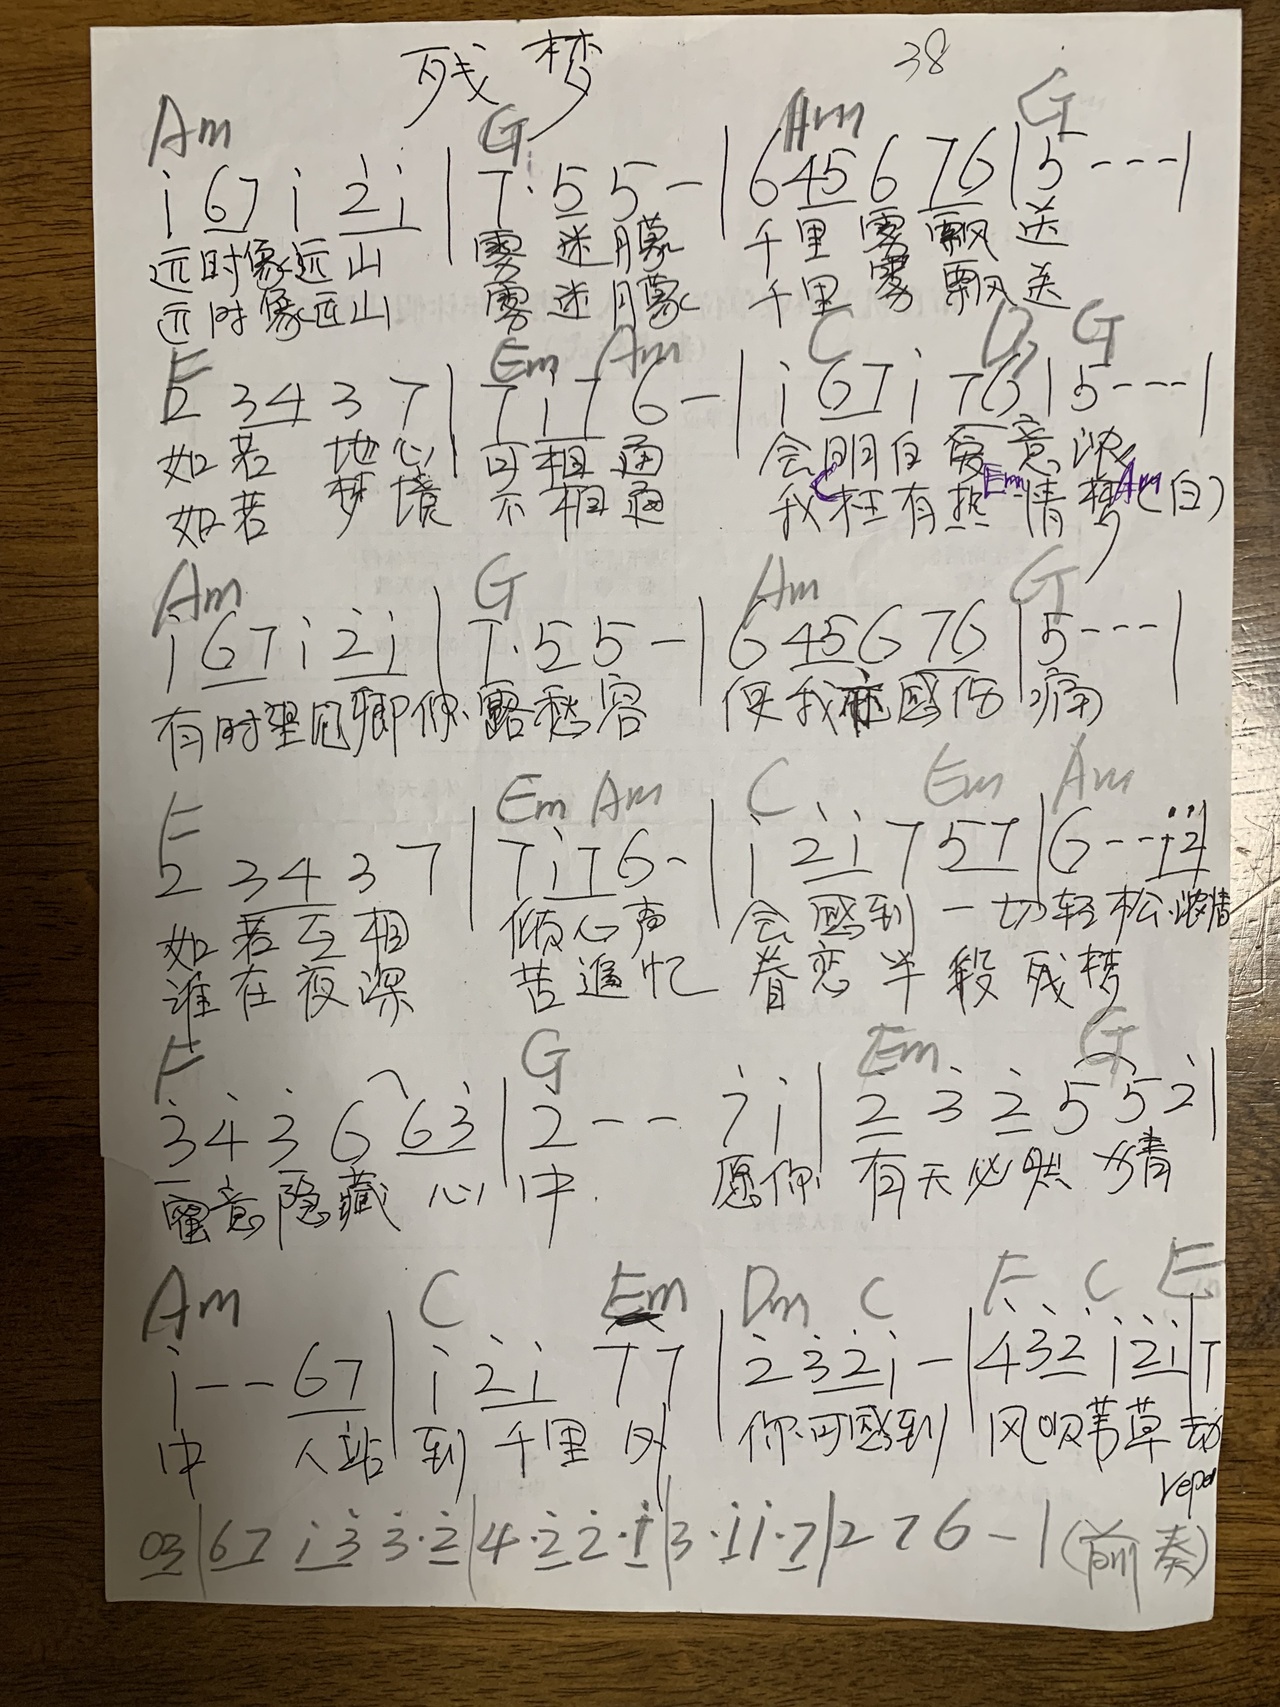 残梦 38
Am G Am G
i 67 i 2i | 7·5 5 - | 6 45 6 76 | 5 - - - |
远时像远山 雾迷朦 千里雾飘送
远时像远山 雾迷朦 千里雾飘送
F Em Am C G
2 34 3 7 | 7 i7 6 - | i 67 i 76 | 5 - - - |
如若地心可相通 会明白爱意浓
C Em Am
如若梦境不相通 我枉有热情梦(白)
Am G Am G
i 67 i 2i | 7·5 5 - | 6 45 6 76 | 5 - - - |
有时望见卿你露愁容 使我亦感伤痛
F Em Am C Em Am
2 34 3 7 | 7 i7 6 - | i 2i 7 57 | 6 - -
如若互相倾心声 会感到一切轻松 浓情
谁在夜深苦追忆 眷恋半段残梦
F G Em G
3 4 3 6 63 | 2 - - 7 i | 2 3 2 5 5 2 |
蜜意隐藏心中 愿你有天必然 情
Am C Em Dm C F C E
i - - 67 | i 2i 7 7 | 2 32 i - | 4 32 i 2i | 7
中 人站到千里外 你可感到 风吹苇草动
03 | 67 i3 3·2 | 4·2 2·i | 3·i i·7 | 2 7 6 - | (前奏)